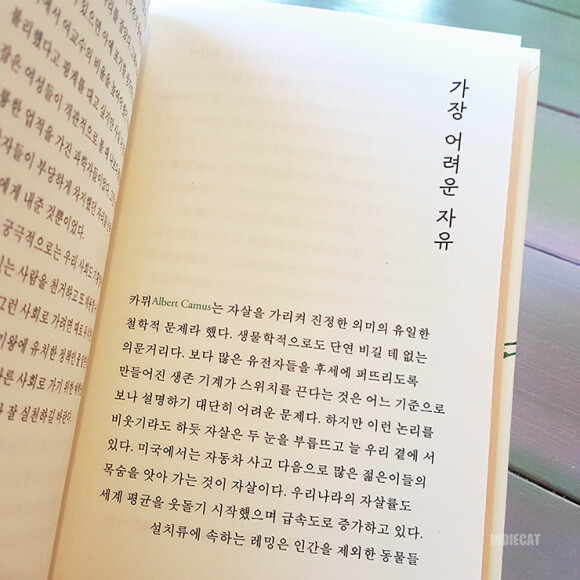 리를
있으면 아예
에서 여교수의 비율을
불리했다고 핑계를 대고 싶지만
많은 여성들이 객관적으로
통한 업적을 가진 과학자들이었다.
자들이 부당하게 차지했던
에게 내준 것뿐이었다.
궁극적으로는 우리 사회도
있는 사람을 천거하고 또
그런 사회로 가려면
기왕에 유치한 정책인
다른 사회로 가기 위한
잘 실천하길 바란다.
가장 어려운 자유
카뮈Albert Camus는 자살을 가리켜 진정한 의미의 유일한
철학적 문제라 했다. 생물학적으로도 단연 비길 데 없는
의문거리다. 보다 많은 유전자들을 후세에 퍼뜨리도록
만들어진 생존 기계가 스위치를 끈다는 것은 어느 기준으로
보나 설명하기 대단히 어려운 문제다. 하지만 이런 논리를
비웃기라도 하듯 자살은 두 눈을 부릅뜨고 늘 우리 곁에 서
있다. 미국에서는 자동차 사고 다음으로 많은 젊은이들의
목숨을 앗아 가는 것이 자살이다. 우리나라의 자살률도
세계 평균을 웃돌기 시작했으며 급속도로 증가하고 있다.
설치류에 속하는 레밍은 인간을 제외한 동물들
INDIECAT